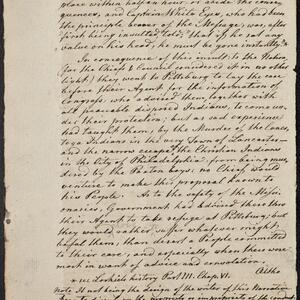 place within half an hour, or abide the conse-
quences, and Captain White Eyes, who had been
the principle bearer of the Message, was, after
first being insulted, told, "that if he set any
value on his head, he must be gone instantly."
In consequence of this insult to the Nation
(for the Chiefs & Council considered it in no other
light) they went to Pittsburg to lay the case
before their Agent for the information of
Congress, who advised them, together with
all peaceable disposed Indians, to come un-
der their protection; but as sad experience
had taught them, by the Murder of the Cones,
toga Indians in the very Town of Lancaster—
and the narrow escape the Christian Indians
in the City of Philadelphia from being mur-
dered by the Paxton boys; no Chief would
venture to make this proposal known to
his People. As to the safety of the Missi-
onaries, Government had advised them thro
their Agent to take refuge at Pittsburg; but
they would rather suffer whatever might
befal them, than desert a People committed
to their care; and especially when there were
most in want of advice and consolation.
Altho
see Loskiels history Part III. Chap. VI.
Note It not being the design of the writer of this Narration